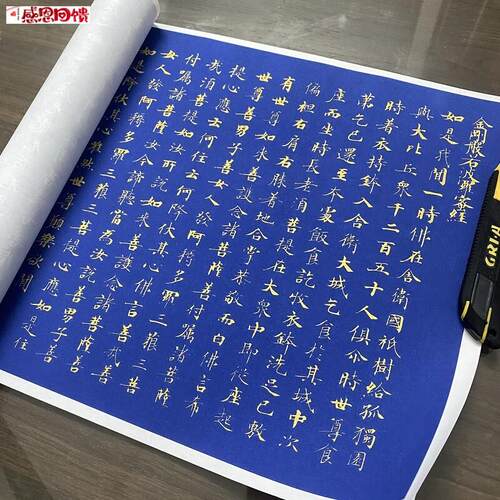 感恩回馈
金剛般若波羅蜜經
如是我聞一時佛在舍衛國祇樹給孤獨園
與大比丘衆千二百五十人俱尒時世尊食
時著衣持鉢入舍衛大城乞食於其城中次
第乞已還至本處飯食訖收衣鉢洗足已敷
座而坐時長老須菩提在大衆中即從座起
偏袒右肩右膝著地合掌恭敬而白佛言希
有世尊如來善護念諸菩薩善付囑諸菩薩
世尊善男子善女人發阿耨多羅三藐三菩
提心應云何住云何降伏其心佛言善哉善
哉須菩提如汝所說如來善護念諸菩薩善
付囑諸菩薩汝今諦聽當為汝說善男子善
女人發阿耨多羅三藐三菩提心應如是住
如是降伏其心唯然世尊願樂欲聞